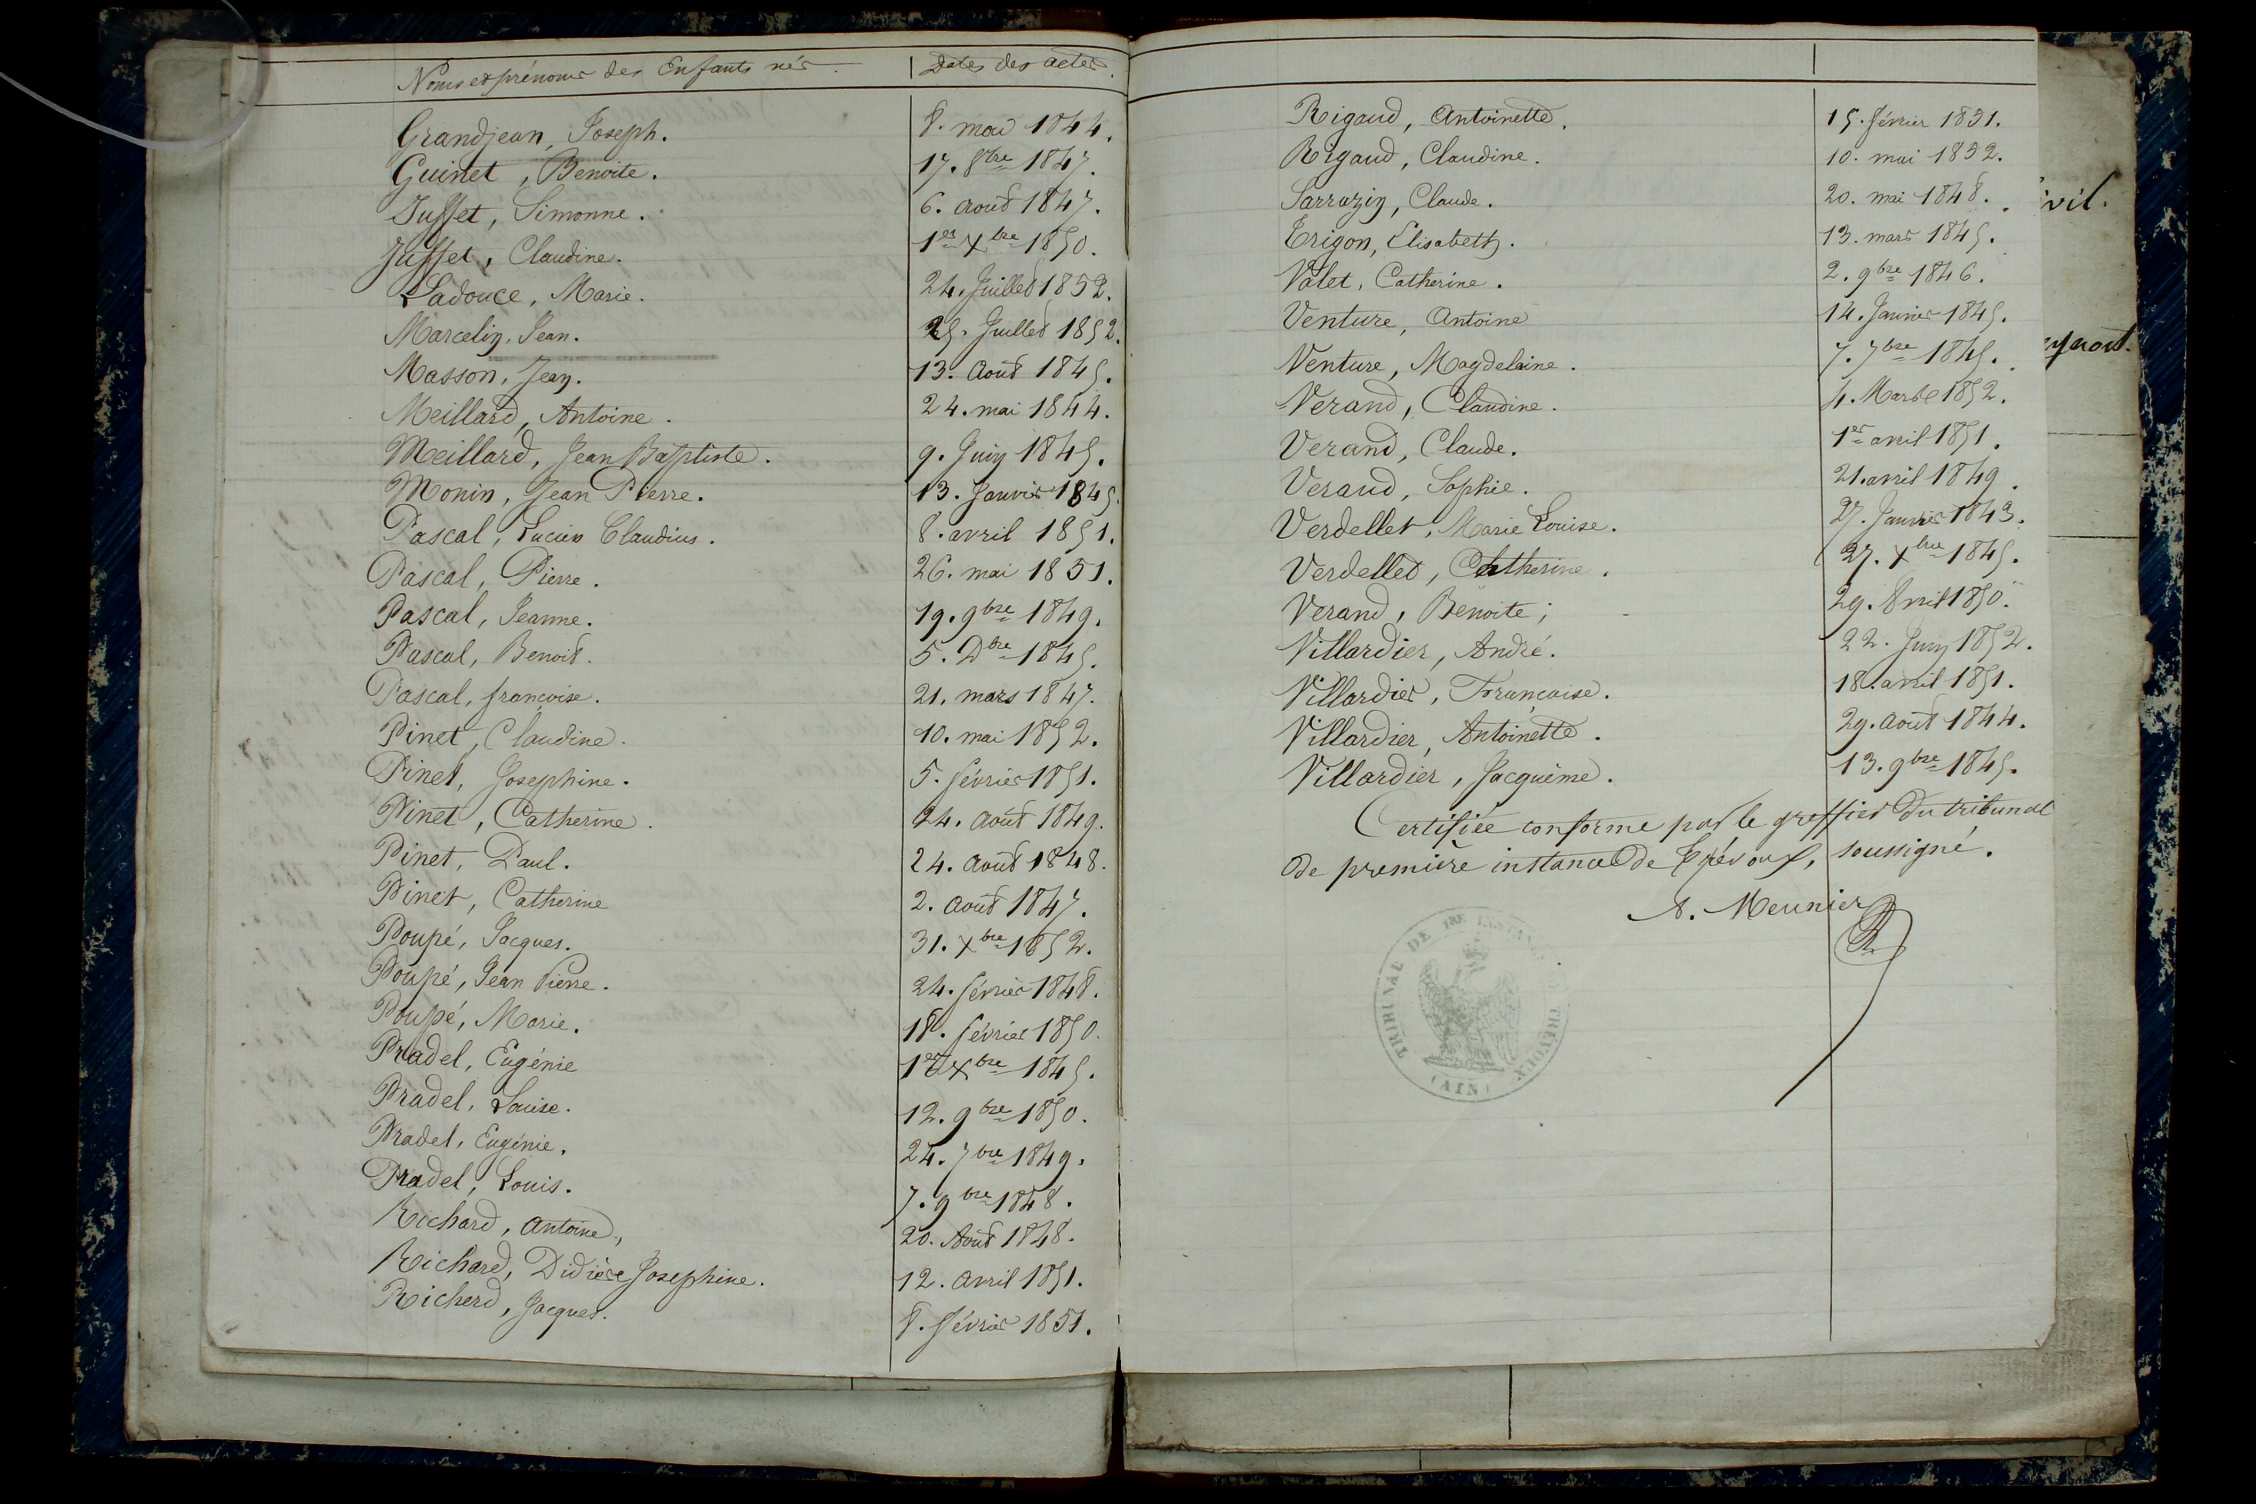 Noms et prénoms des Enfants nés. Dates des actes.
Grandjean, Joseph. 8. mai 1844.
Guinet, Benoite. 17. 8bre 1847.
Juffet, Simonne. 6. août 1847.
Juffet, Claudine. 1er Xbre 1850.
Ladouce, Marie. 24. Juillet 1852.
Marcelin, Jean. 25. Juillet 1852.
Masson, Jean. 13. Août 1845.
Meillard, Antoine. 24. mai 1844.
Meillard, Jean Baptiste. 9. Juin 1845.
Monin, Jean Pierre. 13. Janvier 1845.
Pascal, Lucien Claudius. 8. avril 1851.
Pascal, Pierre. 26. mai 1851.
Pascal, Jeanne. 19. 9bre 1849.
Pascal, Benoit. 5. Dbre 1845.
Pascal, françoise. 21. mars 1847.
Pinet, Claudine. 10. mai 1852.
Pinet, Josephine. 5. février 1851.
Pinet, Catherine. 24. Août 1849.
Pinet, Paul. 24. Août 1848.
Pinet, Catherine 2. Août 1847.
Poupé, Jacques. 31. Xbre 1852.
Poupé, Jean Pierre. 24. février 1848.
Poupé, Marie. 18. février 1850.
Pradel, Eugénie 1er Xbre 1845.
Pradel, Louise. 12. 9bre 1850.
Pradel, Eugénie. 24. 7bre 1849.
Pradel, Louis. 7. 9bre 1848.
Richard, Antoine, 20. Août 1848.
Richard, Didière Josephine. 12. Avril 1851.
Richerd, Jacques. 8. février 1851.
Rigaud, Antoinette. 15. février 1851.
Rigaud, Claudine. 10. mai 1852.
Sarrazin, Claude. 20. mai 1848.
Trigon, Elisabeth. 13. mars 1845.
Valet, Catherine. 2. 9bre 1846.
Venture, Antoine 14. Janvier 1845.
Venture, Magdelaine. 7. 7bre 1845.
Verand, Claudine. 4. Mars 1852.
Verand, Claude. 1er avril 1851.
Veraud, Sophie. 21. avril 1849.
Verdellet, Marie Louise. 27. Janvier 1843.
Verdellet, Catherine. 27. Xbre 1845.
Verand, Benoite; 29. Avril 1850.
Villardier, André. 22. Juin 1852.
Villardier, Françoise. 18. avril 1851.
Villardier, Antoinette. 29. août 1844.
Villardier, Jacquème. 13. 9bre 1845.
Certifiée conforme par le greffier du tribunal
de première instance de Trévoux, soussigné.
A. Meunier
TRIBUNAL DE 1RE INSTANCE DE TREVOUX
(AIN)
ivil.